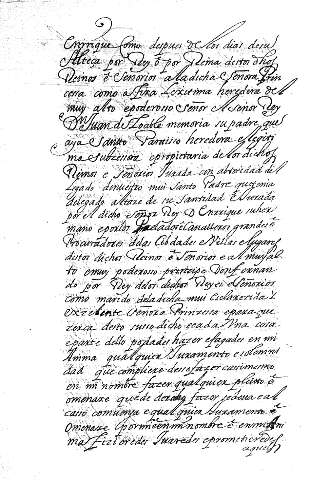 Enrrique Como despues de los dias de su
Alteça por Rey, o por Reina destos dhos
Reinos e Señorios a la dicha Señora Prin
cesa como a fixa Lexitima heredera del
muy alto e poderoso Señor el Señor Rey
Don Juan de loable memoria su padre, que
aya santo Paraiso heredera e legiti
ma subcesora e propietaria de los dichos
Reinos e Señorios Jurada con abtoridad del
Legado de nuestro mui Santo Padre que
delegado de su Santidad e Jurada
por el dicho señor Rey D Enrrique su her
mano e por los Perlados e Caualleros grandes e
Procuradores de las Cibdades e Villas e lugares
destos dichos Reinos e Señorios e al muy al
to e muy poderoso principe Don fernan
do por Rey de los dichos Reynos e Señorios
como marido de la dicha mui esclarecida e
excelente Señora Princessa e para que
cerca desto suso dicho e cada Una cosa
e parte dello podades hazer e fagades en mi
Anima qualquier Juramento e solemni
dad que cumpliere de se fazer e assimismo
en mi nombre fazer qualquier pleito e
omenaxe que de derecho fazer se deua e al
caso conuenga e qual quier Juramento e
Omenaxe por mi e en mi nombre e en mi Ani
ma Ficieredes Juraredes e prometieredes
aquel